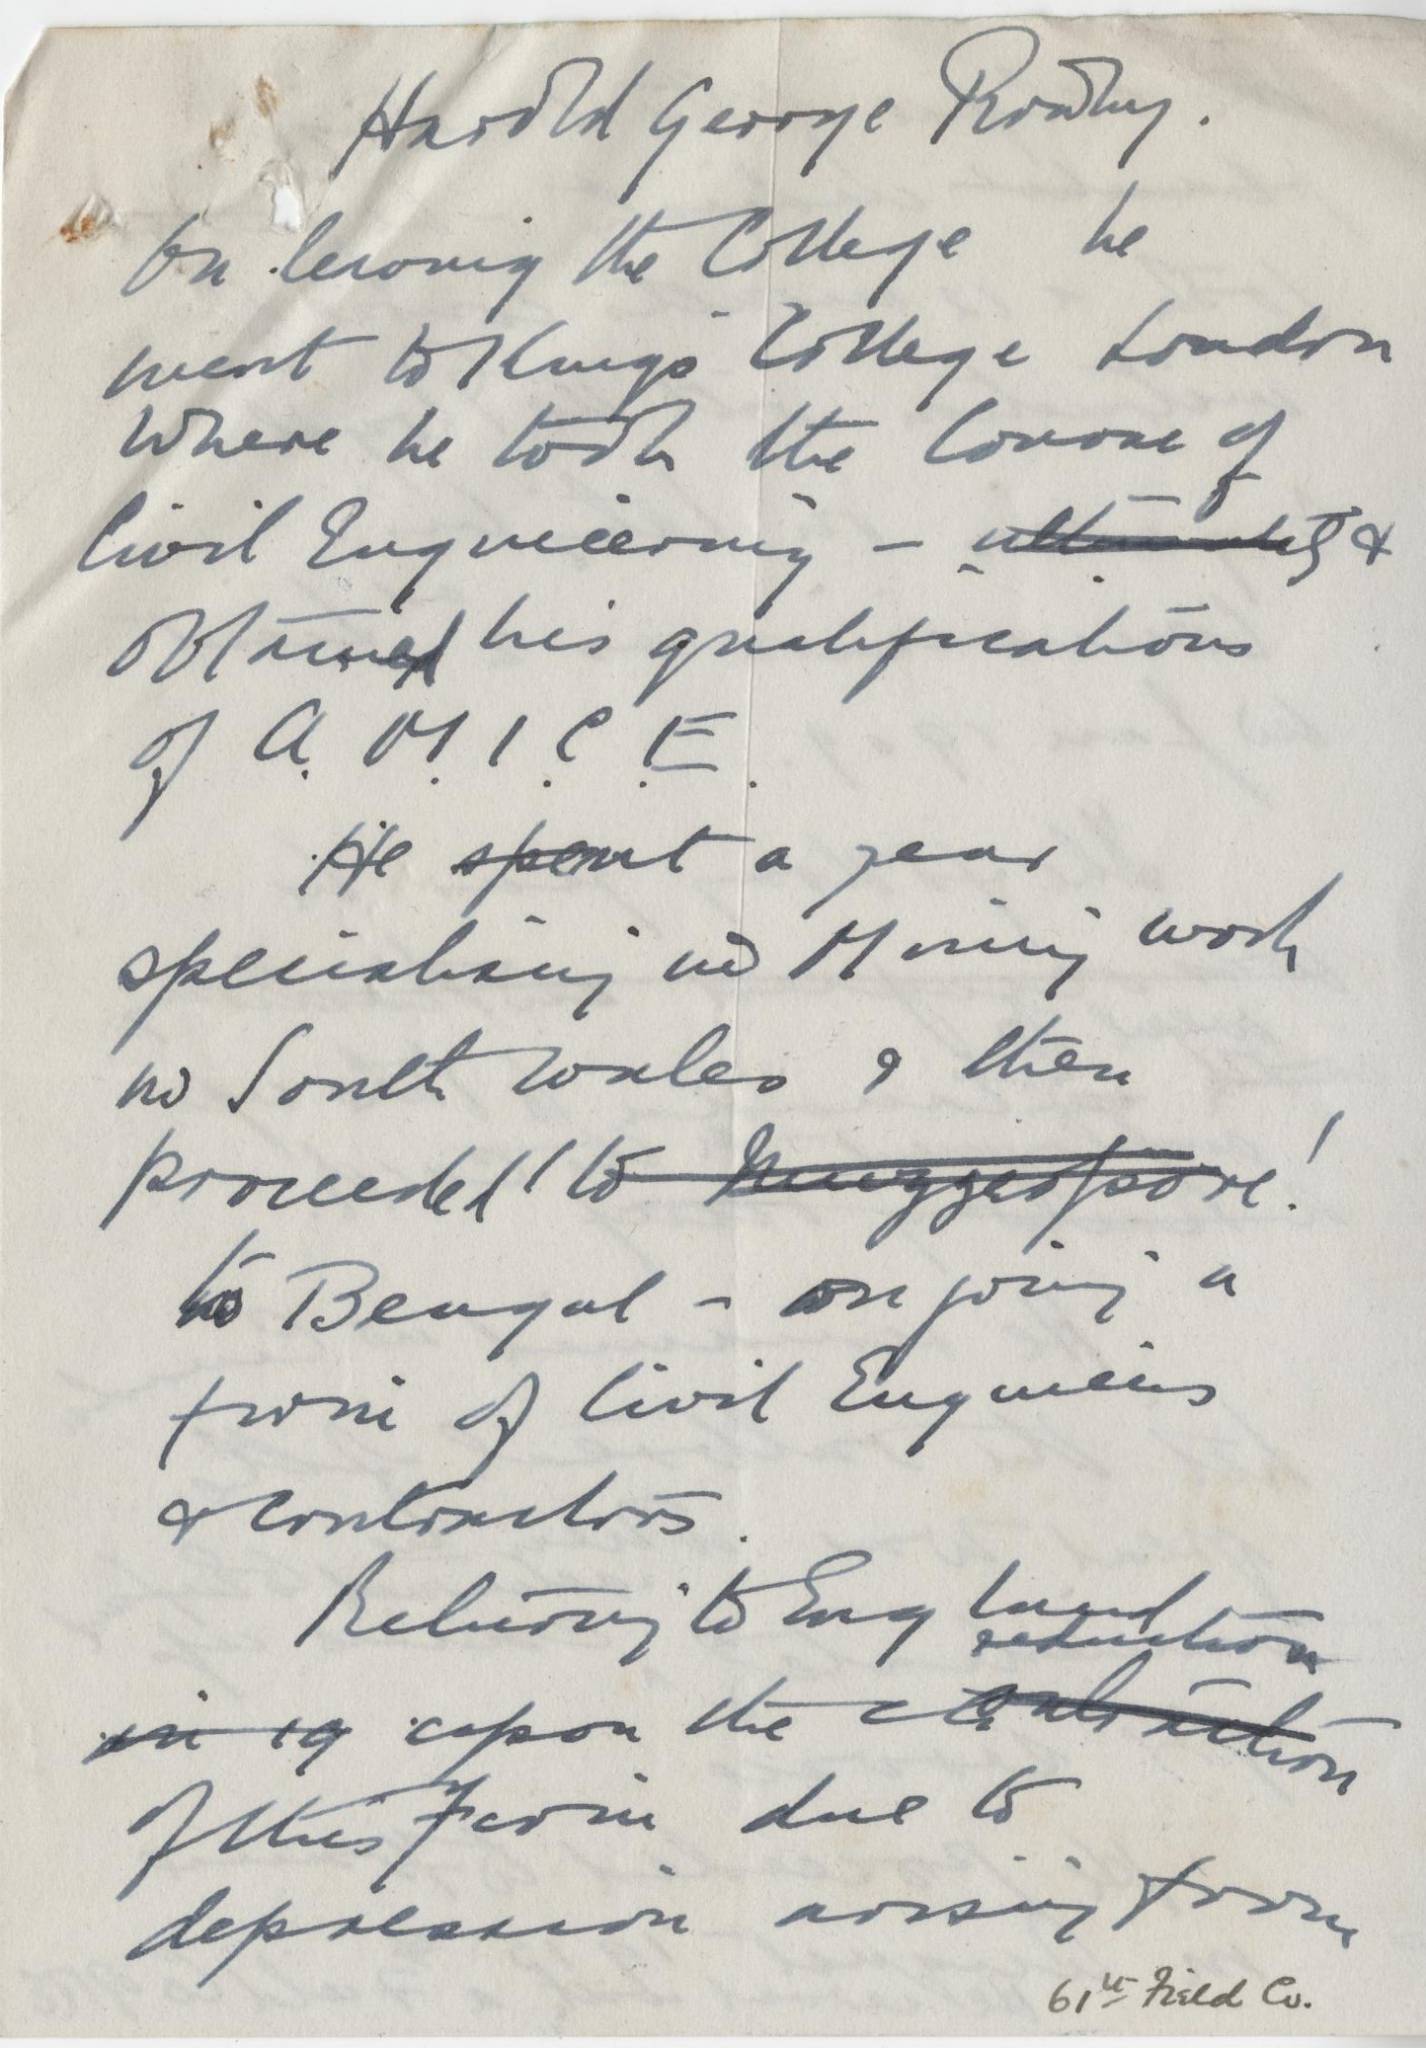 Harold George Rowley.
On leaving the College he
went to King's College London
where he took the Course of
Civil Engineering - ultimately &
obtained his qualifications
of A. M. I. C. E.
He spent a year
specialising in Mining work
in South Wales & then
proceeded to Muzzerpore!
to Bengal - on joining a
firm of Civil Engineers
& contractors.
Returning to England
reduction
in 19 upon the
of this Firm due to
depression arising from
61st Field Co.